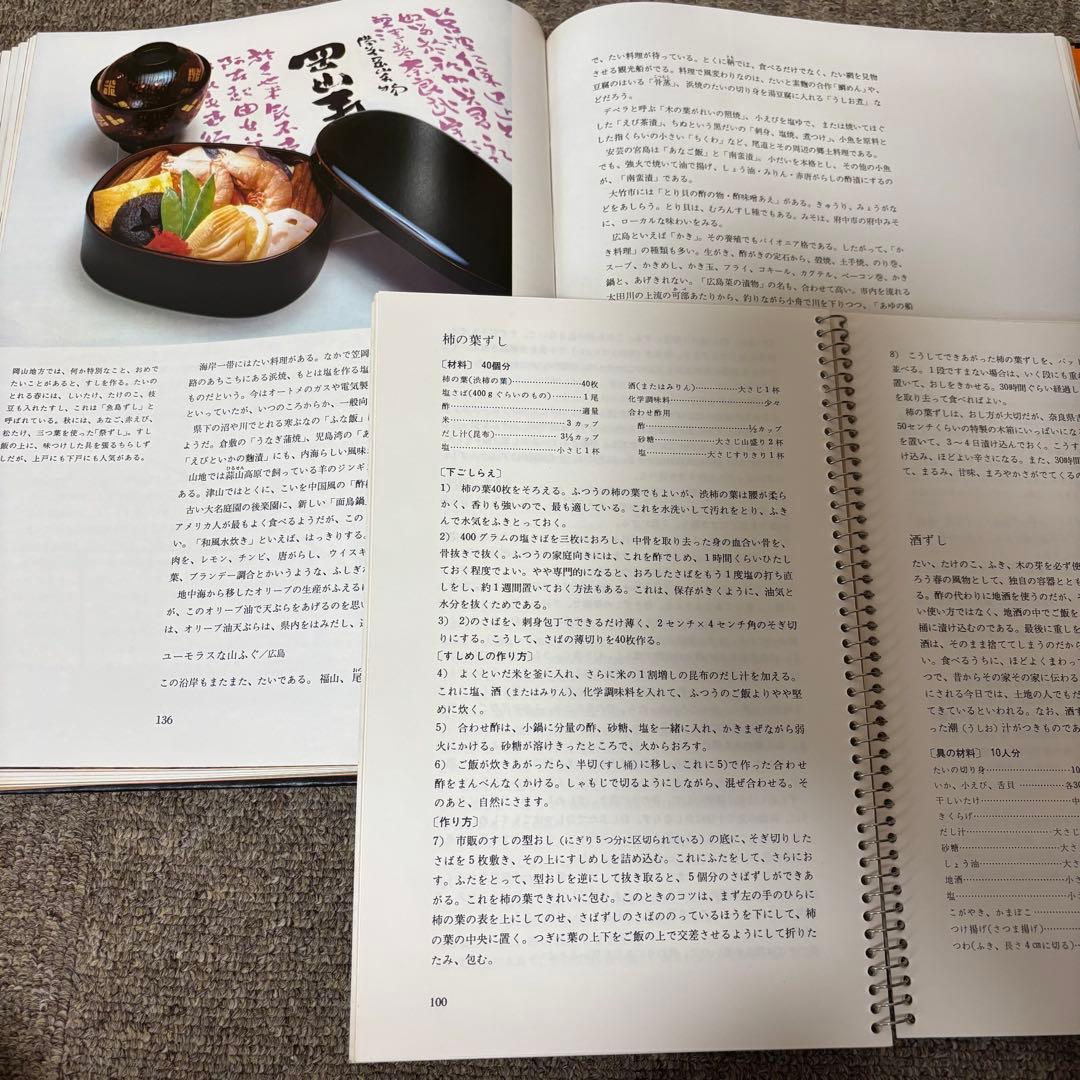 岡山
で、たい料理が待っている。とくに鞆では、食べるだけでなく、たい網を見物
させる観光船がでる。料理で風変わりなのは、たいと素麺の合作「鯛めん」や、
豆腐のはいる「骨蒸」、浜焼のたいの切り身を湯豆腐に入れる「うしお煮」な
どだろう。
デベラと呼ぶ「木の葉がれいの照焼」、小えびを塩ゆで、または焼いてほぐ
した「えび茶漬」、ちぬという黒だいの「刺身、塩焼、煮つけ」、小魚を原料と
した指くらいの小さい「ちくわ」など、尾道とその周辺の郷土料理である。
安芸の宮島は「あなご飯」と「南蛮漬」。小だいを本格とし、その他の小魚
でも、強火で焼いて油で揚げ、しょう油・みりん・赤唐がらしの酢漬にするの
が、「南蛮漬」である。
大竹市には「とり貝の酢の物・酢味噌あえ」がある。きゅうり、みょうがな
どをあしらう。とり貝は、むろんすし種でもある。みそは、府中市の府中みそ
に、ローカルな味わいをみる。
広島といえば「かき」。その養殖でもパイオニア格である。したがって、「か
き料理」の種類も多い。生がき、酢がきの定石から、殻焼、土手焼、のり巻、
スープ、かきめし、かき玉、フライ、コキール、カクテル、ベーコン巻、かき
鍋と、あげきれない。「広島菜の漬物」の名も、合わせて高い。市内を流れる
太田川の上流の可部あたりから、釣りながら小舟で川を下りつつ、「あゆの船
岡山地方では、何か特別なこと、おめで
たいことがあると、すしを作る。たいの
とれる春には、しいたけ、たけのこ、枝
豆も入れたすし、これは「魚島ずし」と
呼ばれている。秋には、あなご、赤えび、
松たけ、三つ葉を使った「祭ずし」。すし
飯の上に、味つけした具を張るちらしず
しだが、上戸にも下戸にも人気がある。
海岸一帯にはたい料理がある。なかで笠岡
路のあちこちにある浜焼、もとは塩を作る塩
ものだという。今はオートメのガスや電気製
といっていたが、いつのころからか、一般向
県下の沼や川でとれる寒ぶなの「ふな飯」に
ようだ。倉敷の「うなぎ蒲焼」、児島湾の「あ
「えびといかの麹漬」にも、内海らしい風味
山地では蒜山高原で飼っている羊のジンギ
ひるせん
ある。津山ではとくに、こいを中国風の「酢
古い大名庭園の後楽園に、新しい「面鳥鍋
アメリカ人が最もよく食べるようだが、この
い。「和風水炊き」といえば、はっきりする。
肉を、レモン、チンピ、唐がらし、ウイスキ
葉、ブランデー調合とかいうような、ふしぎ
地中海から移したオリーブの生産がふえるに
が、このオリーブ油で天ぷらをあげるのを思い
は、オリーブ油天ぷらは、県内をはみだし、
ユーモラスな山ふぐ/広島
この沿岸もまたまた、たいである。福山、尾
136
柿の葉ずし
〔材料〕 40個分
柿の葉(渋柿の葉)……………40枚
塩さば(400gぐらいのもの)………1尾
酢……………適量
米……………3カップ
だし汁(昆布)……………3½カップ
塩……………小さじ1杯
酒(またはみりん)……………大さじ1杯
化学調味料……………少々
合わせ酢用
酢……………½カップ
砂糖……………大さじ山盛り2杯
塩……………大さじすりきり1杯
〔下ごしらえ〕
1) 柿の葉40枚をそろえる。ふつうの柿の葉でもよいが、渋柿の葉は腰が柔ら
かく、香りも強いので、最も適している。これを水洗いして汚れをとり、ふき
んで水気をふきとっておく。
2) 400グラムの塩さばを三枚におろし、中骨を取り去った身の血合い骨を、
骨抜きで抜く。ふつうの家庭向きには、これを酢でしめ、1時間くらいひたし
ておく程度でよい。やや専門的になると、おろしたさばをもう1度塩の打ち直
しをし、約1週間置いておく方法もある。これは、保存がきくように、油気と
水分を抜くためである。
3) 2)のさばを、刺身包丁でできるだけ薄く、2センチ×4センチ角のそぎ切
りにする。こうして、さばの薄切りを40枚作る。
〔すしめしの作り方〕
4) よくといだ米を釜に入れ、さらに米の1割増しの昆布のだし汁を加える。
これに塩、酒(またはみりん)、化学調味料を入れて、ふつうのご飯よりやや堅
めに炊く。
5) 合わせ酢は、小鍋に分量の酢、砂糖、塩を一緒に入れ、かきまぜながら弱
火にかける。砂糖が溶けきったところで、火からおろす。
6) ご飯が炊きあがったら、半切(すし桶)に移し、これに5)で作った合わせ
酢をまんべんなくかける。しゃもじで切るようにしながら、混ぜ合わせる。そ
のあと、自然にさます。
〔作り方〕
7) 市販のすしの型おし(にぎり5つ分に区切られている)の底に、そぎ切りした
さばを5枚敷き、その上にすしめしを詰め込む。これにふたをして、さらにお
す。ふたをとって、型おしを逆にして抜き取ると、5個分のさばずしができあ
がる。これを柿の葉できれいに包む。このときのコツは、まず左の手のひらに
柿の葉の表を上にしてのせ、さばずしのさばののっているほうを下にして、柿
の葉の中央に置く。つぎに葉の上下をご飯の上で交差させるようにして折りた
たみ、包む。
100
8) こうしてできあがった柿の葉ずしを、バッ
並べる。1段ですまない場合は、いく段にも重ね
置いて、おしをきかせる。30時間ぐらい経過し
を取り去って食べればよい。
柿の葉ずしは、おし方が大切だが、奈良県吉
50センチくらいの特製の木箱にいっぱいになる
を置いて、3〜4日漬け込んでおく。こうす
け込み、ほどよい辛さになる。また、30時間
て、まるみ、甘味、まろやかさがでてくるの
酒ずし
たい、たけのこ、ふき、木の芽を必ず使
ろう春の風物として、独自の容器ととも
る。酢の代わりに地酒を使うのだが、そ
い使い方ではなく、地酒の中でご飯を
桶に漬け込むのである。最後に重しを
酒は、そのまま捨ててしまうのだから
い。食べるうちに、ほどよくまわって
つで、昔からその家その家に伝わる
にされる今日では、土地の人でもだ
てきているといわれる。なお、酒ず
った潮(うしお)汁がつきものであ
〔具の材料〕 10人分
たいの切り身……………10
いか、小えび、舌貝……………各30
干しいたけ……………中
きくらげ……………
だし汁……………大さじ
砂糖……………大さ
しょう油……………大さ
地酒……………小さ
塩……………小
こがやき、かまぼこ……………
つけ揚げ(さつま揚げ)……………
つわ(ふき、長さ4cmに切る)……………